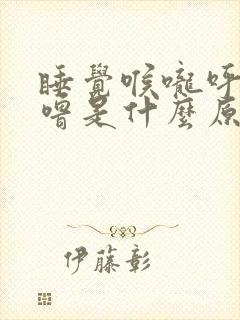 睡覺喉嚨呼
嚕是什麼原
伊藤彰